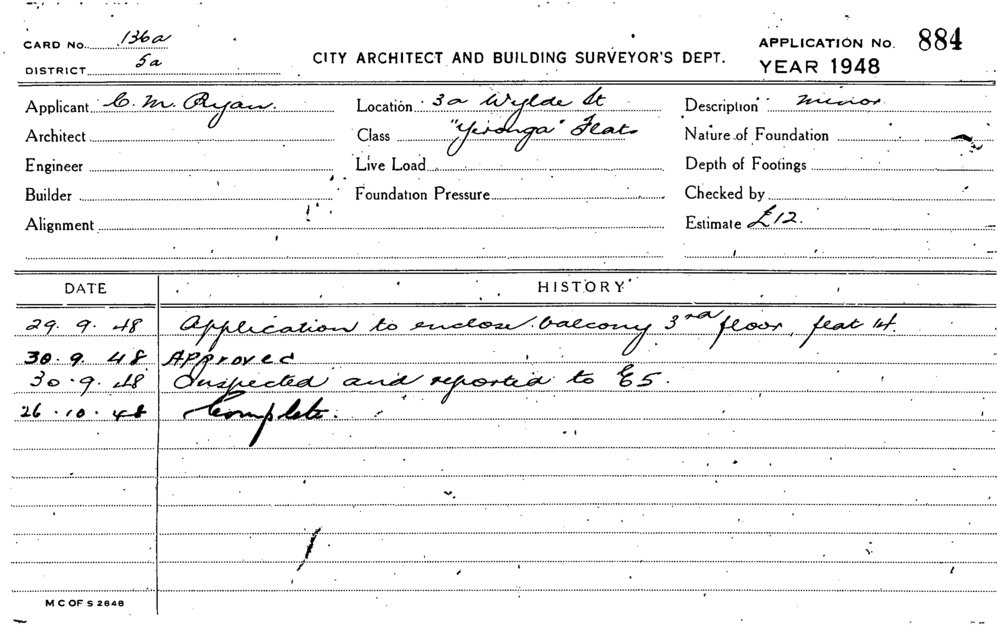 CARD No. 136a
CITY ARCHITECT AND BUILDING SURVEYOR'S DEPT.
APPLICATION No. 884
DISTRICT 5a
YEAR 1948
Applicant C. M. Ryan. Location 3a Wylde St Description minor
Architect Class "Yironga" Flats Nature of Foundation
Engineer Live Load Depth of Footings
Builder Foundation Pressure Checked by
Alignment Estimate £12.
DATE HISTORY
29. 9. 48 Application to enclose balcony 3rd floor, flat 14.
30. 9. 48 Approved
30. 9. 48 Inspected and reported to E5.
26. 10. 48 Complete.
M C OF S 2648